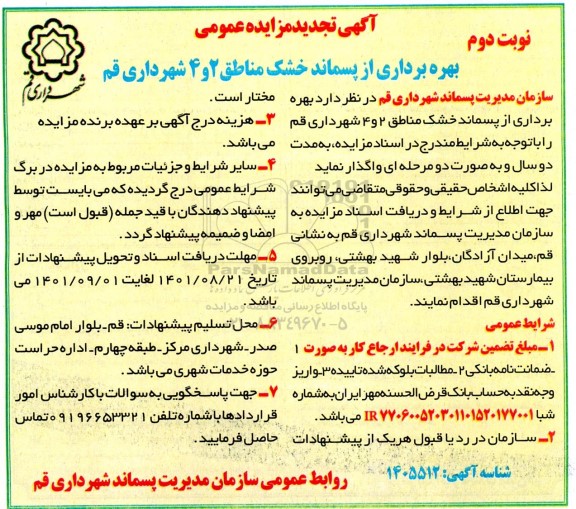 آگهی تجدید مزایده عمومی
نوبت دوم
بهره برداری از پسماند خشک مناطق ۲و۴ شهرداری قم
شهرداری قم
سازمان مدیریت پسماند شهرداری قم در نظر دارد بهره
برداری از پسماند خشک مناطق ۲ و ۴ شهرداری قم
را با توجه به شرایط مندرج در اسناد مزایده، به مدت
دو سال و به صورت دو مرحله ای واگذار نماید
لذا کلیه اشخاص حقیقی و حقوقی متقاضی می توانند
جهت اطلاع از شرایط و دریافت اسناد مزایده به
سازمان مدیریت پسماند شهرداری قم به نشانی
قم، میدان آزادگان، بلوار شهید بهشتی، روبروی
بیمارستان شهید بهشتی، سازمان مدیریت پسماند
شهرداری قم اقدام نمایند.
شرایط عمومی
۱ـ مبلغ تضمین شرکت در فرایند ارجاع کار به صورت ۱
ـ ضمانت نامه بانکی ۲ـ مطالبات بلوکه شده تاییده ۳ـ واریز
وجه نقد به حساب بانک قرض الحسنه مهر ایران به شماره
شبا IR۷۷۰۶۰۰۵۲۰۳۰۱۱۰۱۵۲۰۱۷۷۰۰۱ می باشد.
۲ـ سازمان در رد یا قبول هریک از پیشنهادات
مختار است.
۳ـ هزینه درج آگهی بر عهده برنده مزایده
می باشد.
۴ـ سایر شرایط و جزئیات مربوط به مزایده در برگ
شرایط عمومی درج گردیده که می بایست توسط
پیشنهاد دهندگان با قید جمله (قبول است) مهر و
امضا و ضمیمه پیشنهاد گردد.
۵ـ مهلت دریافت اسناد و تحویل پیشنهادات از
تاریخ ۱۴۰۱/۰۸/۲۱ لغایت ۱۴۰۱/۰۹/۰۱ می
باشد.
۶ـ محل تسلیم پیشنهادات: قم ـ بلوار امام موسی
صدر ـ شهرداری مرکز ـ طبقه چهارم ـ اداره حراست
حوزه خدمات شهری می باشد.
۷ـ جهت پاسخگویی به سوالات با کارشناس امور
قراردادها با شماره تلفن ۰۹۱۹۶۶۵۳۳۲۱ تماس
حاصل فرمایید.
ParsNamadData
پایگاه اطلاع رسانی مناقصه و مزایده
شناسه آگهی: ۱۴۰۵۵۱۲
روابط عمومی سازمان مدیریت پسماند شهرداری قم